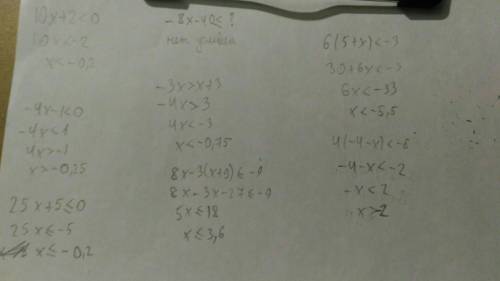 10x+2<0
10x<-2
x<-0,2
-4x-1<0
-4x<1
4x>-1
x>-0,25
25x+5≤0
25x≤-5
x≤-0,2
-8x-40≤?
нет
-3x>x+3
-4x>3
4x<-3
x<-0,75
8x-3(x+9)≤-9
8x-3x-27≤-9
5x≤18
x≤3,6
6(5+x)<-3
30+6x<-3
6x<-33
x<-5,5
4(-4-x)<-8
-4-x<-2
-x<2
x>-2